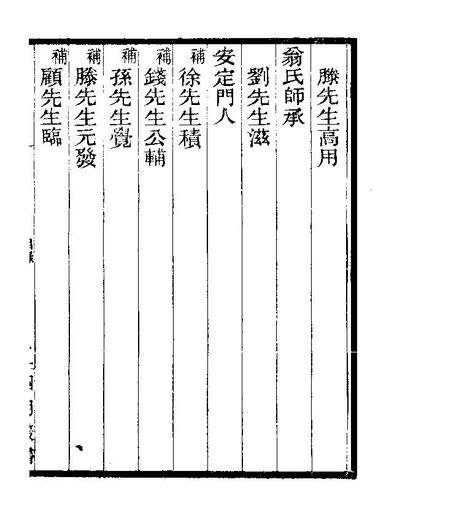 滕先生高用
翁氏師承
劉先生滋
安定門人
補徐先生積
補錢先生公輔
補孫先生覺
補滕先生元發
補顧先生臨